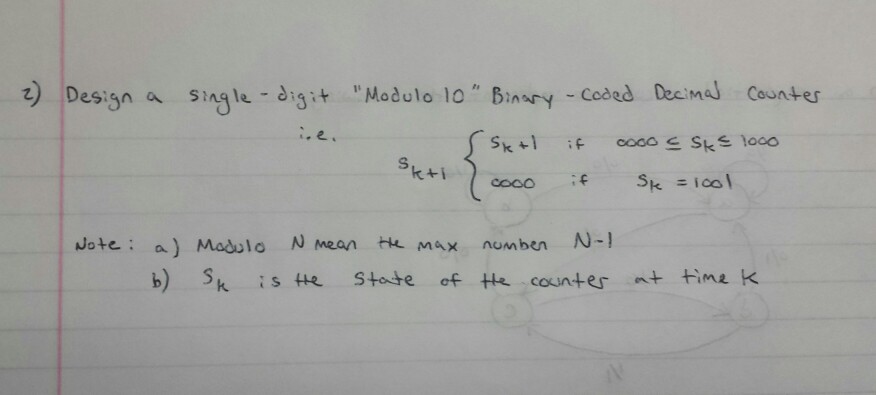 2) Design a single-digit "Modulo 10" Binary-Coded Decimal Counter
i.e. S_{k+1} { S_k+1 if 0000 ≤ S_k ≤ 1000
0000 if S_k = 1001
Note: a) Modulo N mean the max number N-1
b) S_k is the state of the counter at time k